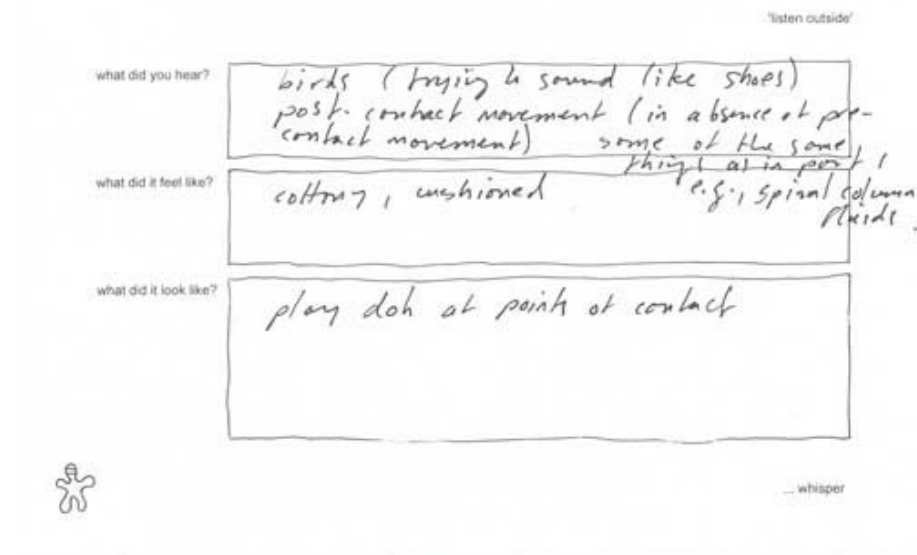 'listen outside'
what did you hear?
birds (trying to sound like shoes)
post-contact movement (in absence of pre-
contact movement) some of the same
things as in part 1
e.g., spinal column
fluids.
what did it feel like?
cottony, cushioned
what did it look like?
play doh at points of contact
... whisper